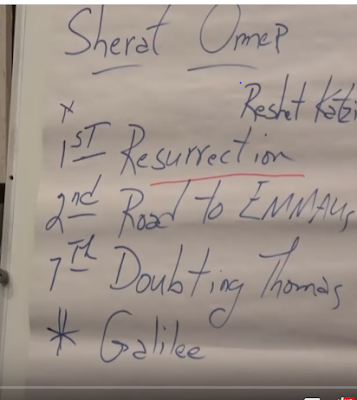 Sherat Omer
Reshet Katzi
x
1ST Resurrection
2nd Road to EMMAUS
7Th Doubting Thomas
* Galilee